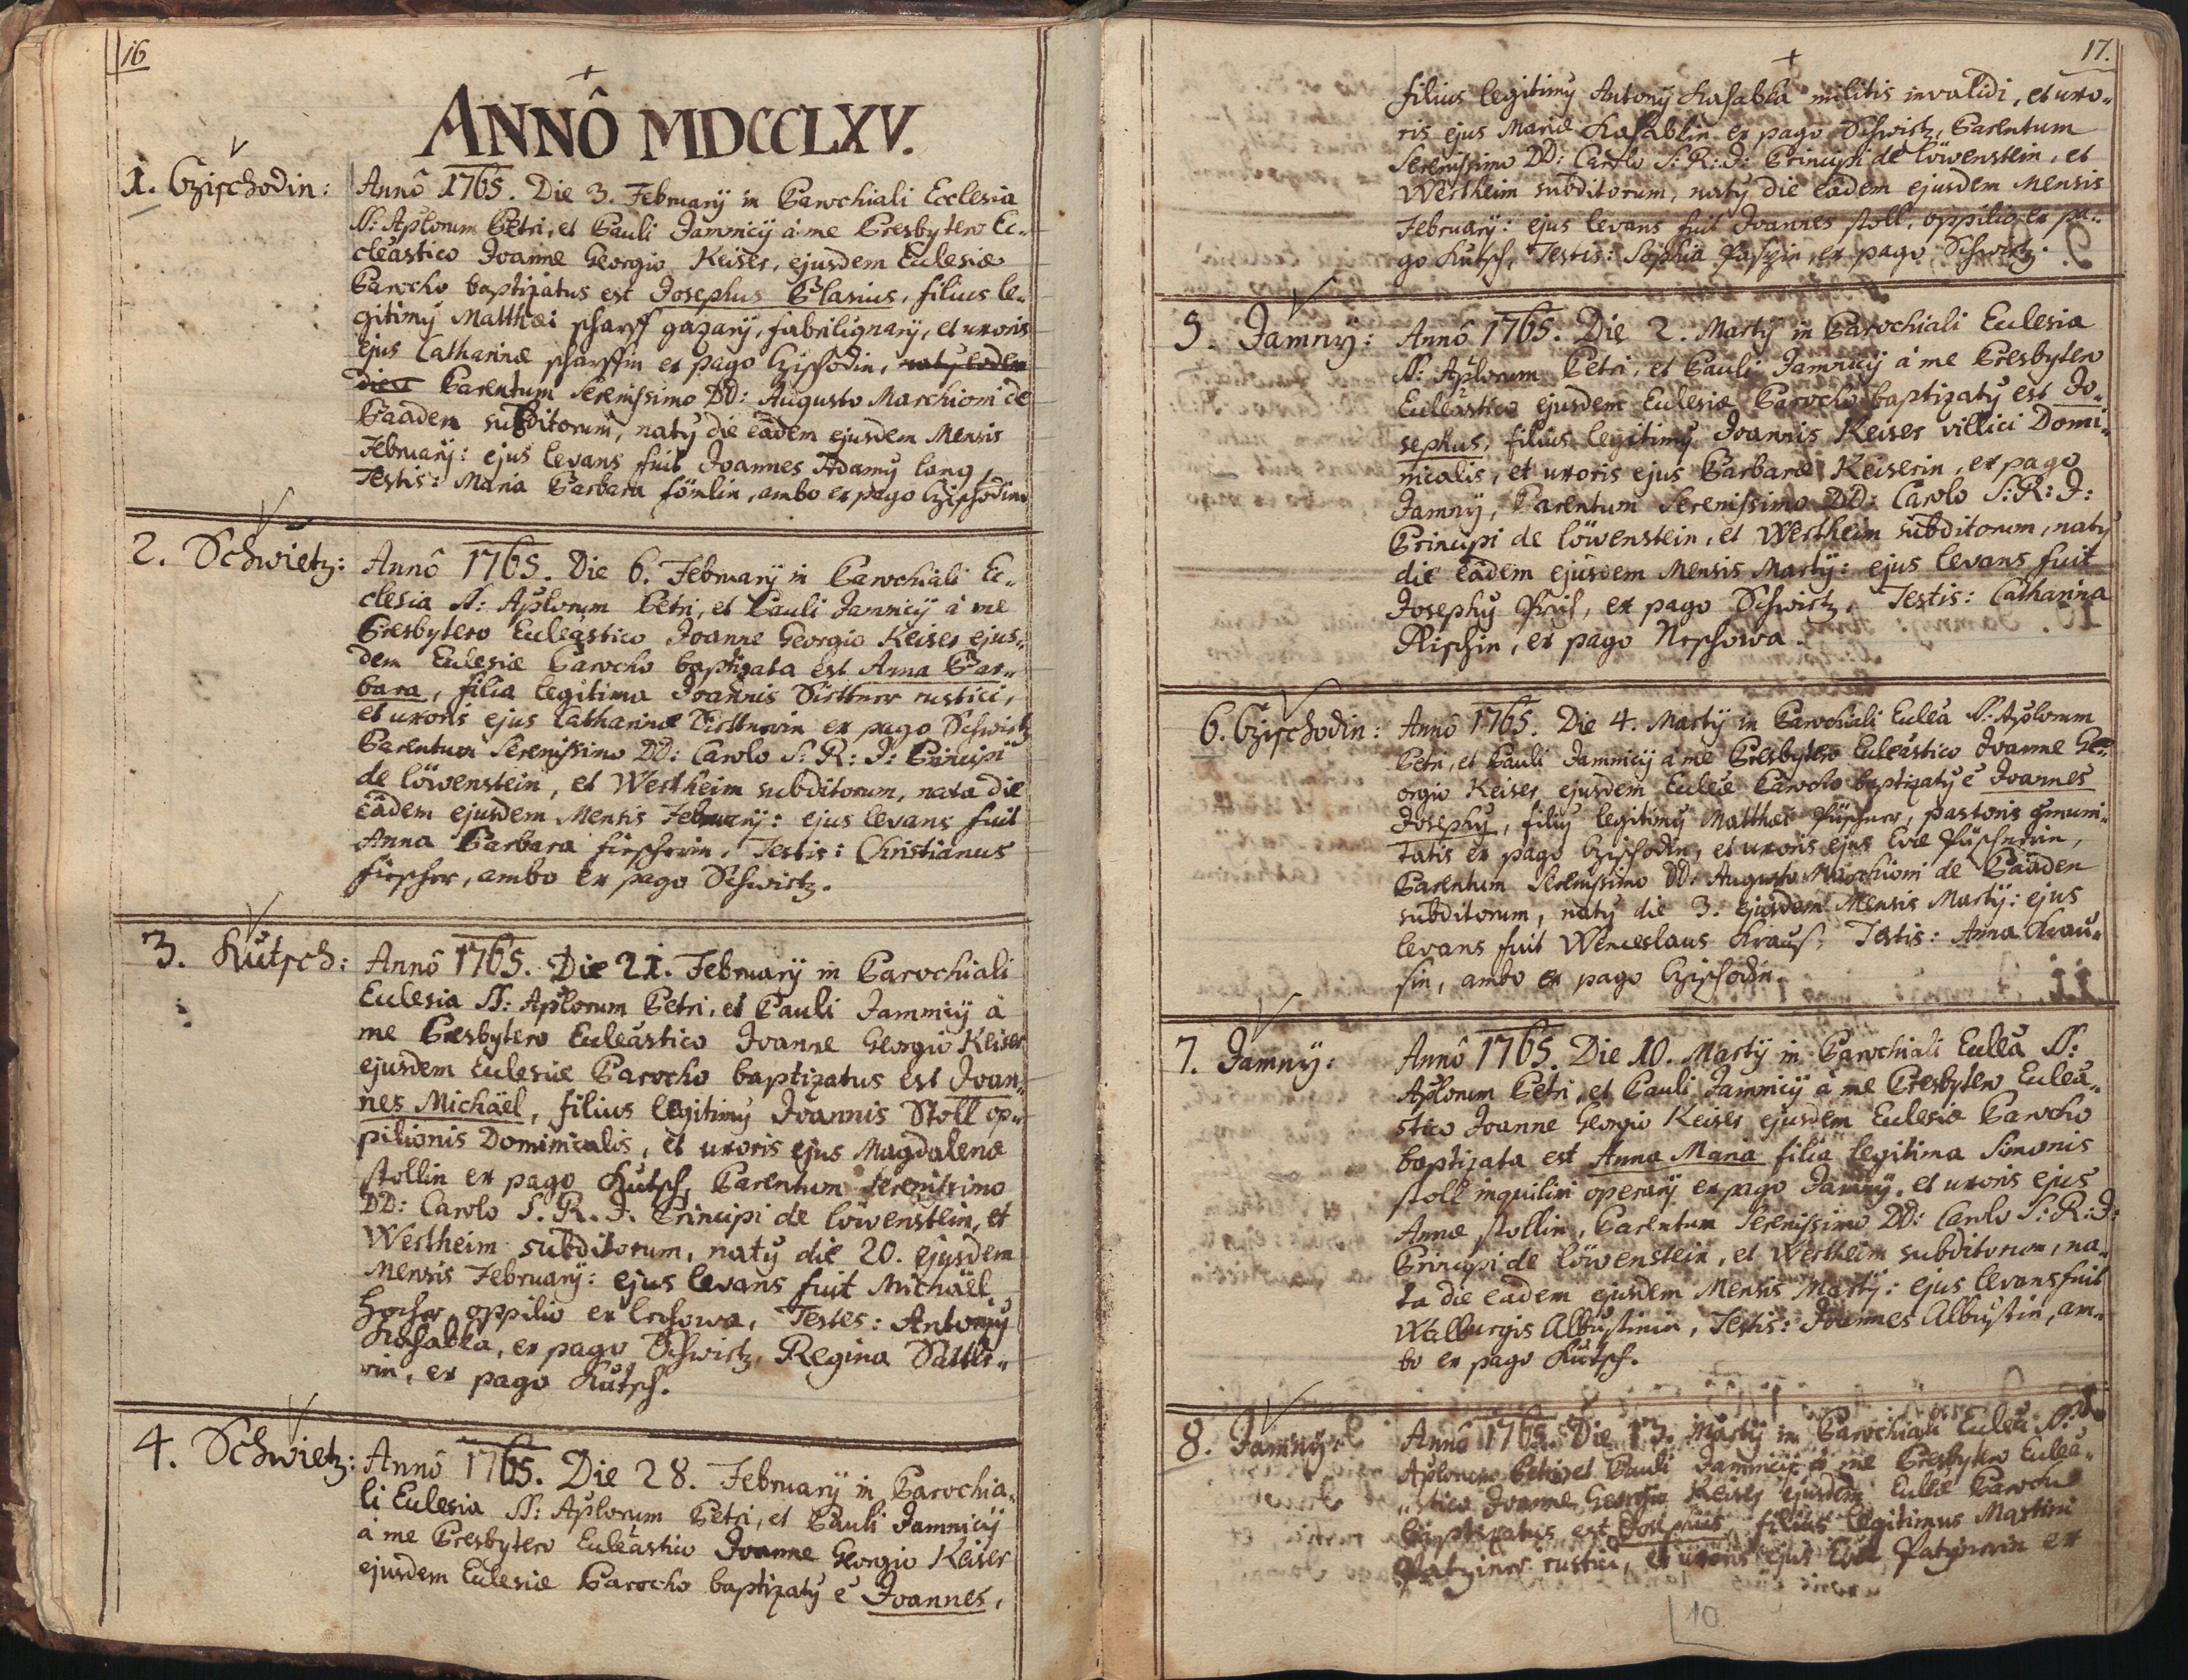 16
ANNÔ MDCCLXV.
1. Czischodin:
Annô 1765. Die 3. Februarÿ in Parochiali Ecclesia
SS: Aplorum Petri, et Pauli Jamnicÿ à me Presbytero Ec„
cleástico Joanne Georgio Keiser, ejusdem Ecclesiæ
Parocho baptizatus est Josephus Blasius, filius le„
gitimy Matthæi scharff gazarÿ, fabrilignarÿ, et uxoris
ejus Catharinæ scharffin ex pago Czischodin, naty eodem
die Parentum Serenissimo DD: Augusto Marchioni de
Baaden subditorum, naty die eâdem ejusdem Mensis
Februarÿ: ejus levans fuit Joannes Adamy lang,
Testis: Maria Barbara sömlin, ambo ex pago Czischodin.
2. Schwietz:
Annô 1765. Die 6. Februarÿ in Parochiali Ec„
clesia SS: Aplorum Petri, et Pauli Jamnicÿ à me
Presbytero Eccleástico Joanne Georgio Keiser ejus„
dem Ecclesiæ Parocho baptizata est Anna Bar„
bara, filia legitima Joannis Dirttner rustici,
et uxoris ejus Catharinæ Dirttnerin ex pago Schwietz
Parentum Serenissimo DD: Carolo S: R: I: Principi
de löwenstein, et Wertheim subditorum, nata die
eâdem ejusdem Mensis Februarÿ: ejus levans fuit
Anna Barbara fischerin, Testis: Christianus
fischer, ambo ex pago Schwietz.
3. Kutsch:
Annô 1765. Die 21. Februarÿ in Parochiali
Ecclesia SS: Aplorum Petri, et Pauli Jamnicÿ à
me Presbytero Eccleástico Joanne Georgio Keiser
ejusdem Ecclesiæ Parocho baptizatus est Joan„
nes Michäel, filius legitimy Joannis Stoll op„
pilionis Dominicalis, et uxoris ejus Magdalenæ
stollin ex pago Kutsch, Parentum Serenissimo
DD: Carolo S. R. I. Principi de löwenstein, et
Wertheim subditorum, naty die 20. ejusdem
Mensis Februarÿ: ejus levans fuit Michäel
oppilio ex Testes: Antoniy
Kasabka, ex pago Schwietz, Regina Sattle„
rin, ex pago Kutsch.
4. Schwietz:
Annô 1765. Die 28. Februarÿ in Parochia„
li Ecclesia SS: Aplorum Petri, et Pauli Jamnicÿ
à me Presbytero Eccleástico Joanne Georgio Keiser
ejusdem Ecclesiæ Parocho baptizaty ē Joannes,
17.
filius legitimy Antonÿ Kasabka militis invalidi, et uxo„
ris ejus Mariæ Kasabkin ex pago Schwietz, Parentum
Serenissimo DD: Carolo S: R: I: Principi de löwenstein, et
Wertheim subditorum, naty die eâdem ejusdem Mensis
Februarÿ: ejus levans fuit Joannes stoll, oppilio ex pa„
go Kutsch, Testis: Sophia ex pago Schwietz.
5. Jamnÿ:
Annô 1765. Die 2. Martÿ in Parochiali Ecclesia
SS: Aplorum Petri, et Pauli Jamnicÿ à me Presbytero
Eccleástico ejusdem Ecclesiæ Parocho baptizaty est Jo„
sephus, filius legitimy Joannis Keiser villici Domi„
nicalis, et uxoris ejus Barbaræ Keiserin, ex pago
Jamnÿ, Parentum Serenissimo DD: Carolo S: R: I:
Principi de löwenstein, et Wertheim subditorum, naty
die eâdem ejusdem Mensis Martÿ: ejus levans fuit
Josephy ex pago Schwietz, Testis: Catharina
ex pago
6. Czischodin:
Annô 1765. Die 4. Martÿ in Parochiali Eccleâ SS: Aplorum
Petri, et Pauli Jamnicÿ à me Presbytero Eccleástico Joanne Ge„
orgio Keiser ejusdem Eccleæ Parocho baptizaty ē Joannes
Josephy, filiy legitimy Matthæi Püschner, pastoris cmuni„
tatis ex pago Czischodin, et uxoris ejus Evæ Püschnerin,
Parentum Serenissimo DD: Augusto Marchioni de Baaden
subditorum, naty die 3. ejusdem Mensis Martÿ: ejus
levans fuit Wenceslaus Krauß, Testis: Anna Krau„
sin, ambo ex pago Czischodin.
7. Jamnÿ:
Annô 1765. Die 10. Martÿ in Parochiali Eccleâ SS:
Aplorum Petri, et Pauli Jamnicÿ à me Presbytero Ecclea„
stico Joanne Georgio Keiser ejusdem Ecclesiæ Parocho
baptizata est Anna Maria filia legitima Simonis
stoll inquilini operarÿ ex pago Jamnÿ, et uxoris ejus
Annæ stollin, Parentum Serenissimo DD: Carolo S: R: I:
Principi de löwenstein, et Wertheim subditorum, na„
ta die eadem ejusdem Mensis Martÿ: ejus levans fuit
Walburgis Albustinin, Testis: Joannes Albustin, am„
bo ex pago Kutsch.
8. Jamnÿ:
Annô 1765. Die 13. Martÿ in Parochiali Eccleâ SS:
Aplorum Petri, et Pauli Jamnicÿ à me Presbytero Ecclea„
stico Joanne Georgio Keiser ejusdem Eccleæ Parocho
baptizatus est Josephus, filius legitimus Martini
Patziner rustici, et uxoris ejus Evæ Patzinerin ex
10